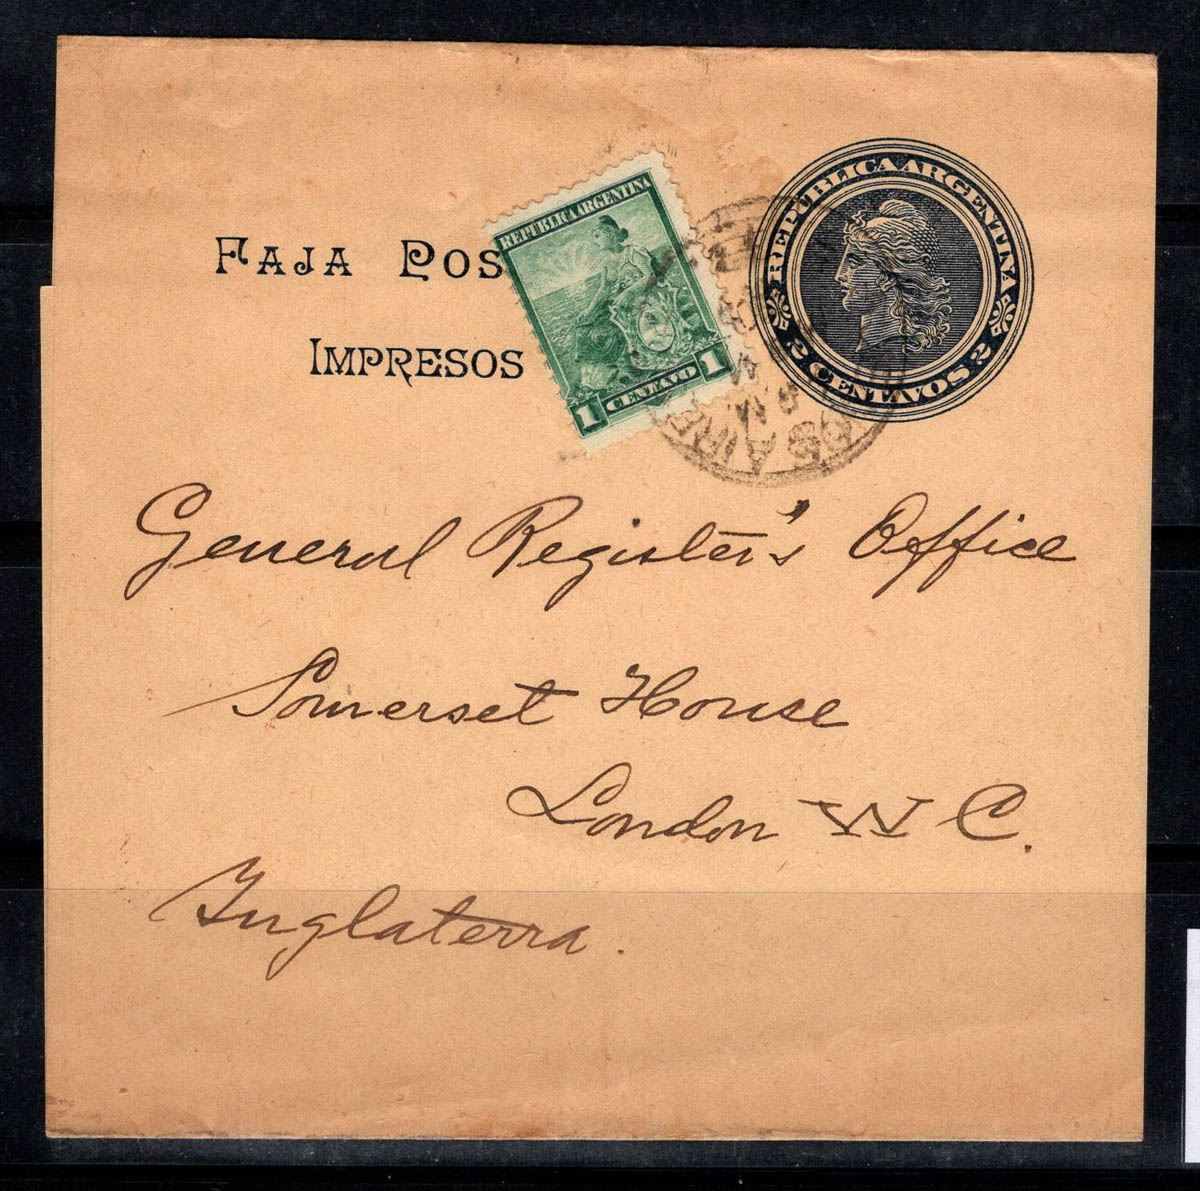 FAJA POS
IMPRESOS
REPUBLICA ARGENTINA
1 CENTAVO 1
REPÚBLICA ARGENTINA
2 CENTAVOS 2
OS AIRES
General Register's Office
Somerset House
London W C.
Inglaterra.